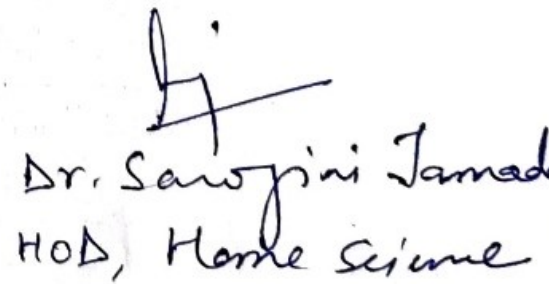 Dr. Sarojini Jamad
HOD, Home Science